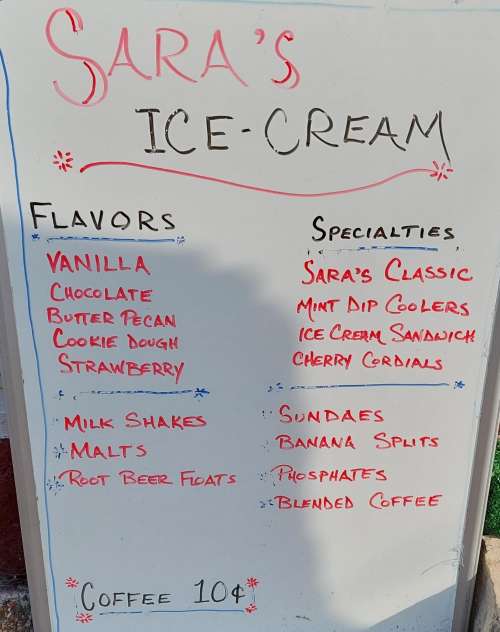 SARA'S
ICE-CREAM
FLAVORS
VANILLA
CHOCOLATE
BUTTER PECAN
COOKIE DOUGH
STRAWBERRY
MILK SHAKES
MALTS
ROOT BEER FLOATS
SPECIALTIES
SARA'S CLASSIC
MINT DIP COOLERS
ICE CREAM SANDWICH
CHERRY CORDIALS
SUNDAES
BANANA SPLITS
PHOSPHATES
BLENDED COFFEE
COFFEE 10¢